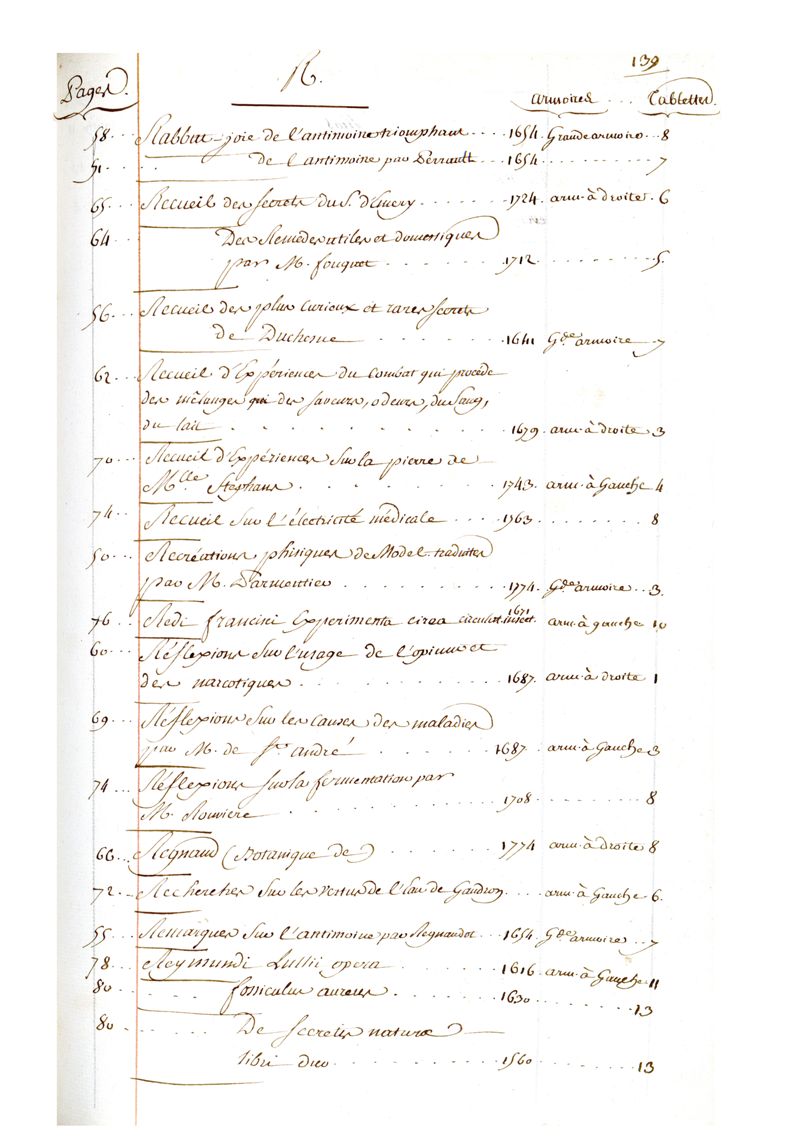 139
R.
Pages. armoires ... Tablettes.
58 .. Rabbat-joie de l'antimoine triomphant .... 1654. Grande armoire .. 8
51 .. .. de l'antimoine par Perrault .. 1654 ........ 7
65 .. Recueil des secrets du S. d'Emery ........ 1724. arm. à droite . 6
64 .. Des Remedes utiles et domestiques
par M. fouquet ........ 1712 ........ 5.
56 .. Recueil des plus curieux et rares secrets
de Duchesne ........ 1641 Gde armoire .. 7
62 .. Recueil d'Expériences du combat qui procède
des mêlanges des saveurs, odeurs, du Sang,
du lait ........ 1679. arm. à droite 3
70 .. Recueil d'Expériences sur la pierre de
Mlle Stephans ........ 1743. arm. à Gauche 4
74 .. Recueil sur l'électricité médicale .... 1763 ........ 8
50 .. Recréations phisiques de Model traduites
par M. Parmentier ........ 1774. Gde armoire .. 3.
76 .. Redi francisci Experimenta circa insect. 1671 arm. à gauche 10
60 .. Réflexions sur l'usage de l'opium et
des narcotiques ........ 1687. arm. à droite 1
69 .. Réflexions sur les causes des maladies
par M. de St andré ........ 1687. arm. à Gauche 3
74 ... Réflexions sur la fermentation par
M. Rouviere ........ 1708 ........ 8
66 ... Regnaud (Botanique de) ........ 1774 arm. à droite 8
72 .. Recherches sur les vertus de l'Eau de Gaudron .... arm. à Gauche 6.
55 .. Remarques sur l'antimoine par Regnaudot .. 1654. Gde armoire .. 7
78 .. Reymundi Lullii opera ........ 1616. arm. à Gauche 11
80 .. .... fossiculus aureus ........ 1630 ........ 13
80 .. ...... De secretis naturæ
libri duo ........ 1560 ........ 13